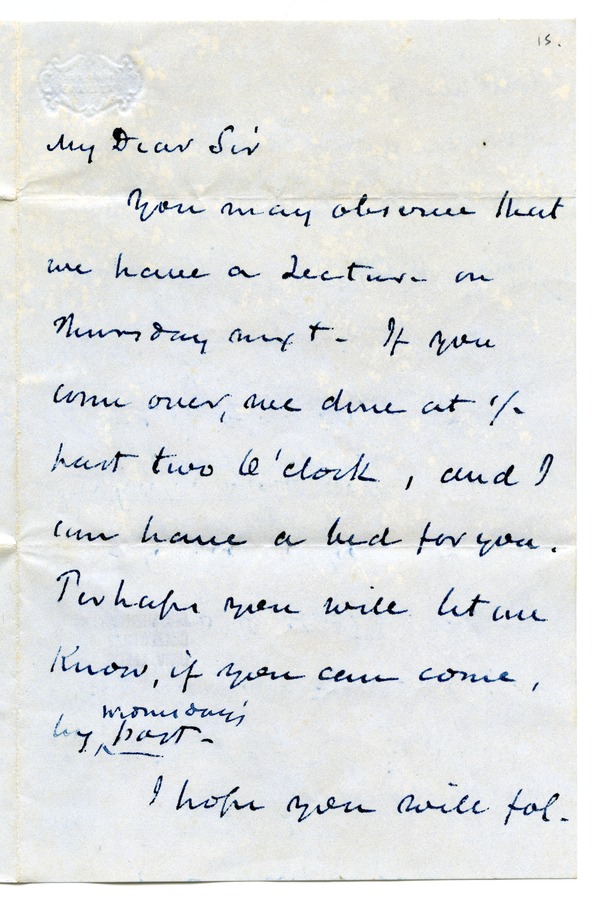 15.
My Dear Sir
You may observe that
we have a Lecture on
Thursday next - If you
come over, we dine at ½
past two O'clock, and I
can have a bed for you.
Perhaps you will let me
know, if you can come,
Wednesday's
by post -
I hope you will fol-